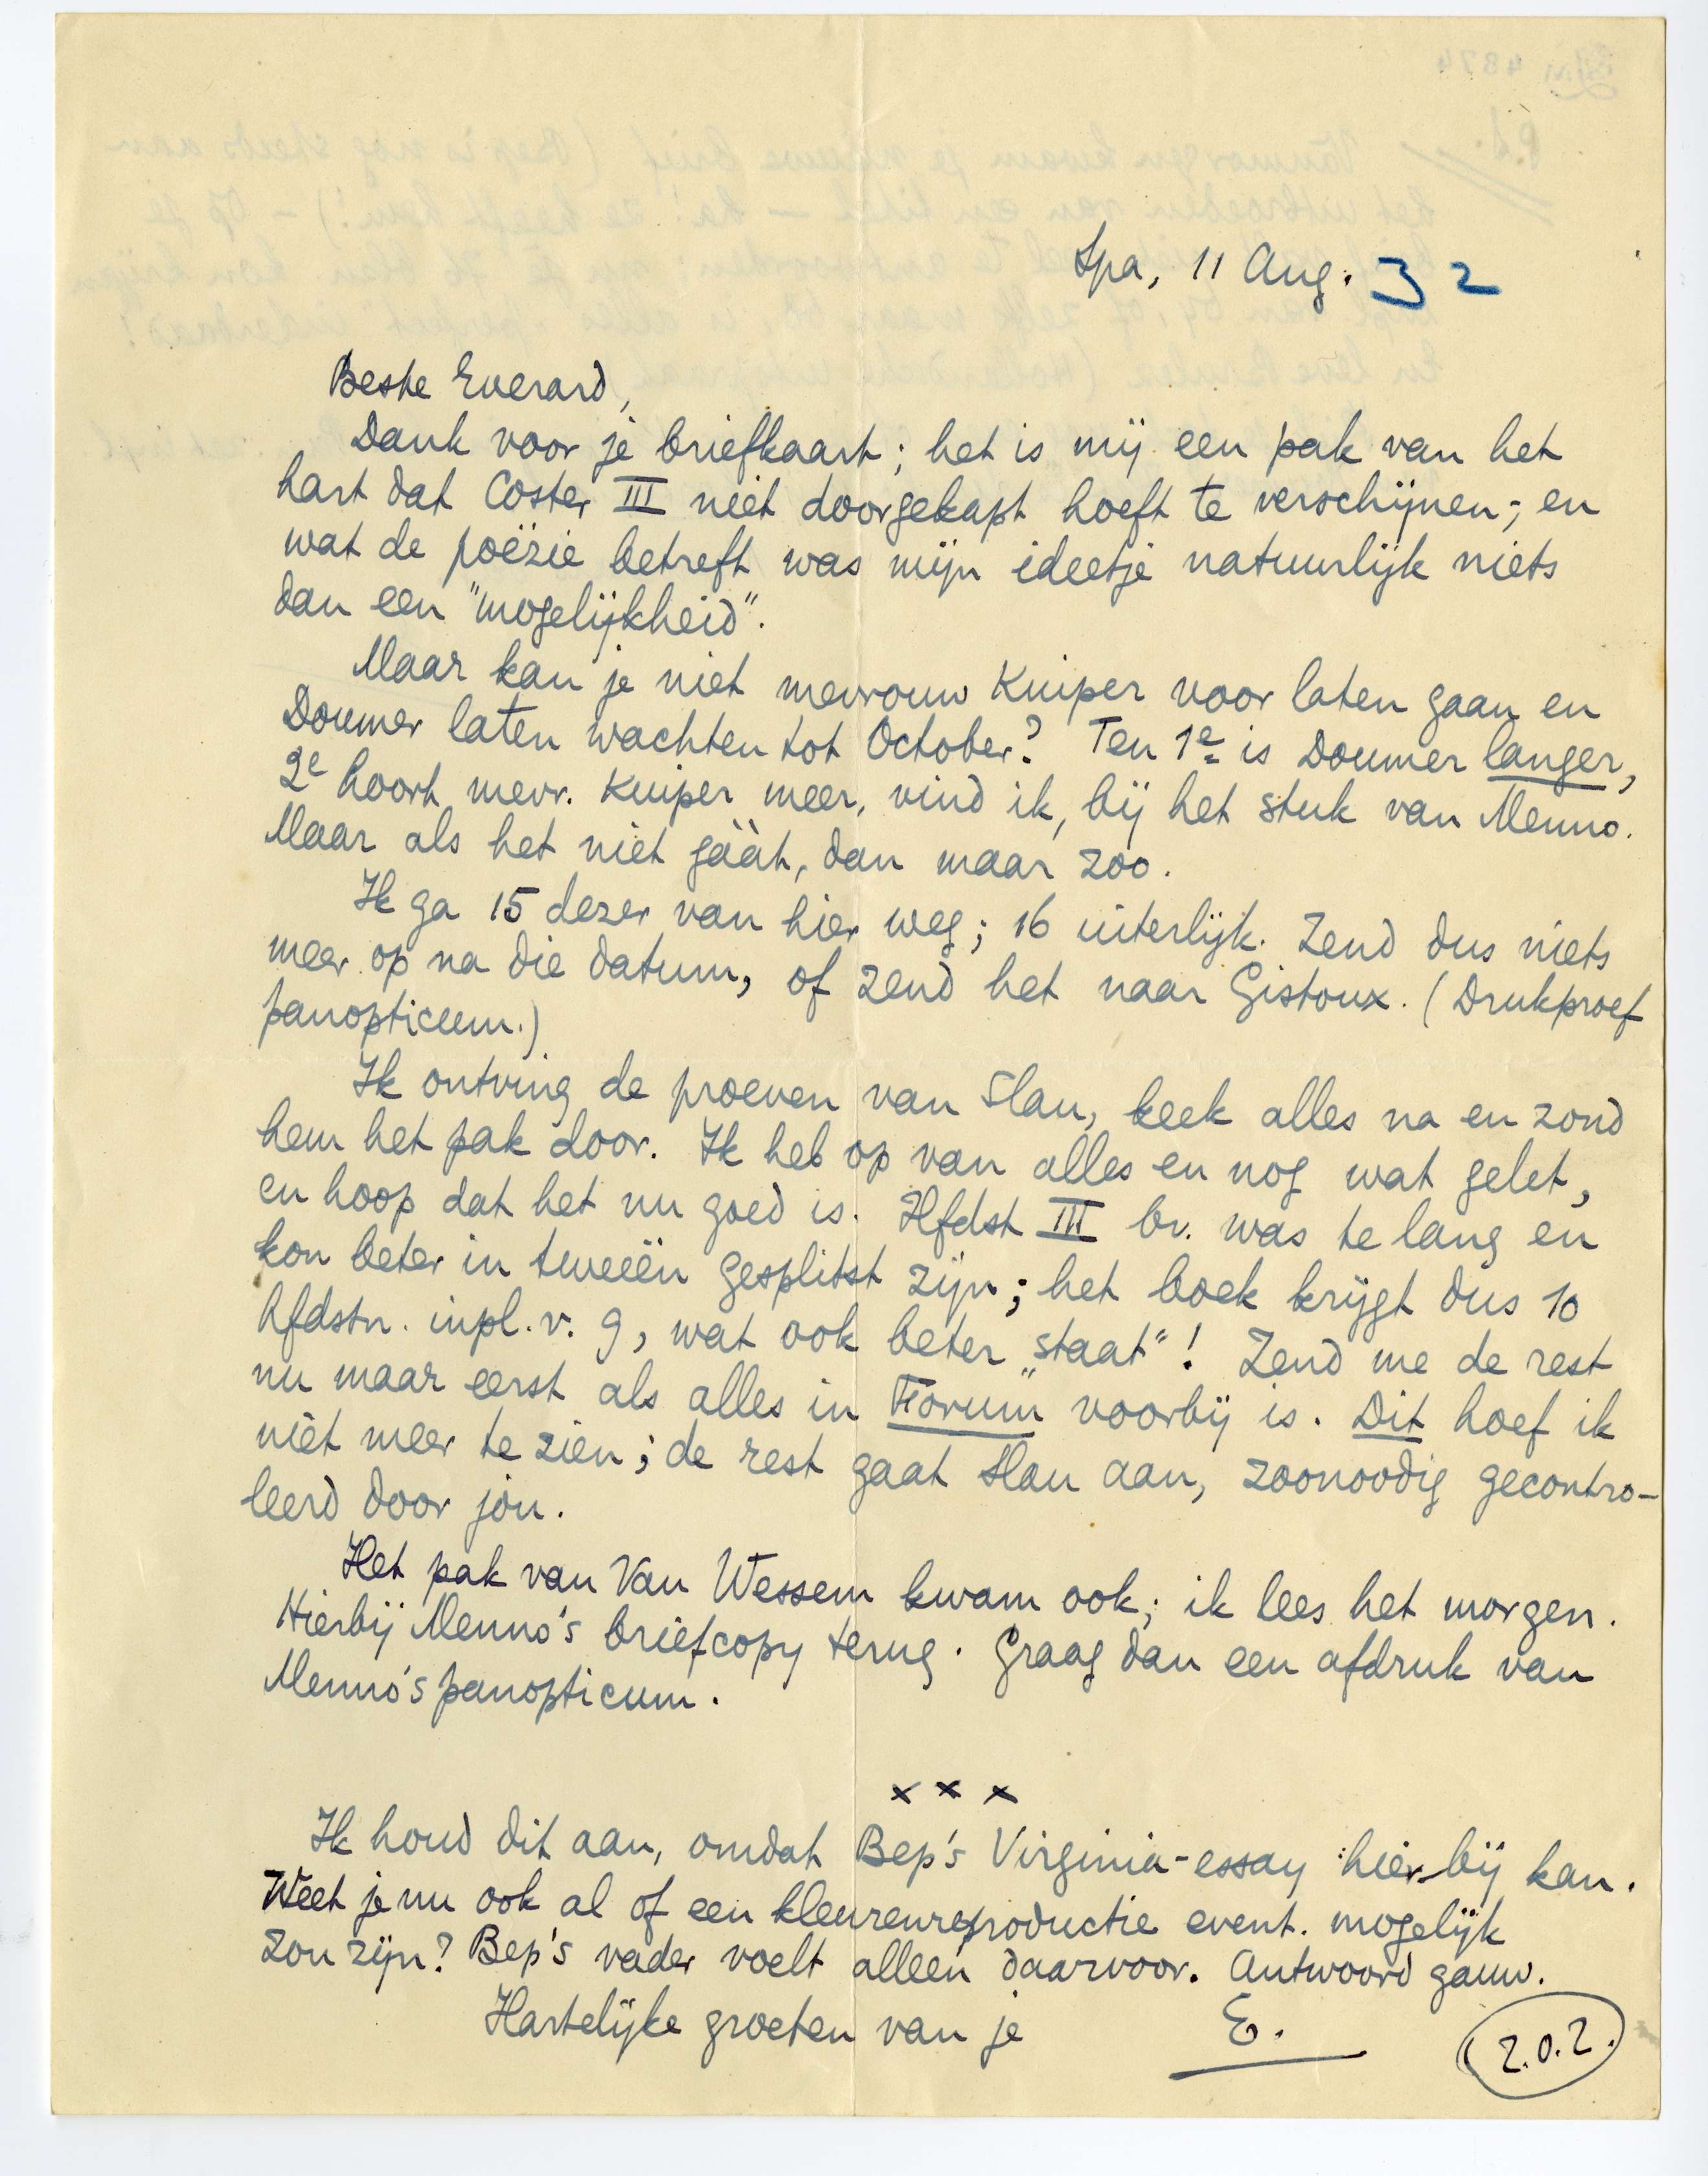 Spa, 11 Aug. 32
Beste Everard,
Dank voor je briefkaart; het is mij een pak van het
hart dat Coster III niet doorgekapt hoeft te verschijnen; en
wat de poëzie betreft was mijn ideetje natuurlijk niets
dan een "mogelijkheid".
Maar kan je niet mevrouw Kuiper voor laten gaan en
Doumer laten wachten tot October? Ten 1e is Doumer langer,
2e hoort mevr. Kuiper meer, vind ik, bij het stuk van Menno.
Maar als het niet gààt, dan maar zoo.
Ik ga 15 dezer van hier weg; 16 uiterlijk. Zend dus niets
meer op na die datum, of zend het naar Gistoux. (Drukproef
panopticum.)
Ik ontving de proeven van Slau, keek alles na en zond
hem het pak door. Ik heb op van alles en nog wat gelet,
en hoop dat het nu goed is. Hfdst III bv. was te lang en
kon beter in tweeën gesplitst zijn; het boek krijgt dus 10
hfdstn. inpl. v. 9, wat ook beter "staat"! Zend me de rest
nu maar eerst als alles in "Forum" voorbij is. Dit hoef ik
niet meer te zien; de rest gaat Slau aan, zoonoodig gecontro-
leerd door jou.
Het pak van Van Wessem kwam ook; ik lees het morgen.
Hierbij Menno's briefcopy terug. Graag dan een afdruk van
Menno's panopticum.
x x x
Ik houd dit aan, omdat Bep's Virginia-essay hierbij kan.
Weet je nu ook al of een kleurenreproductie event. mogelijk
zou zijn? Bep's vader voelt alleen daarvoor. Antwoord gauw.
Hartelijke groeten van je E.
Z.O.Z.